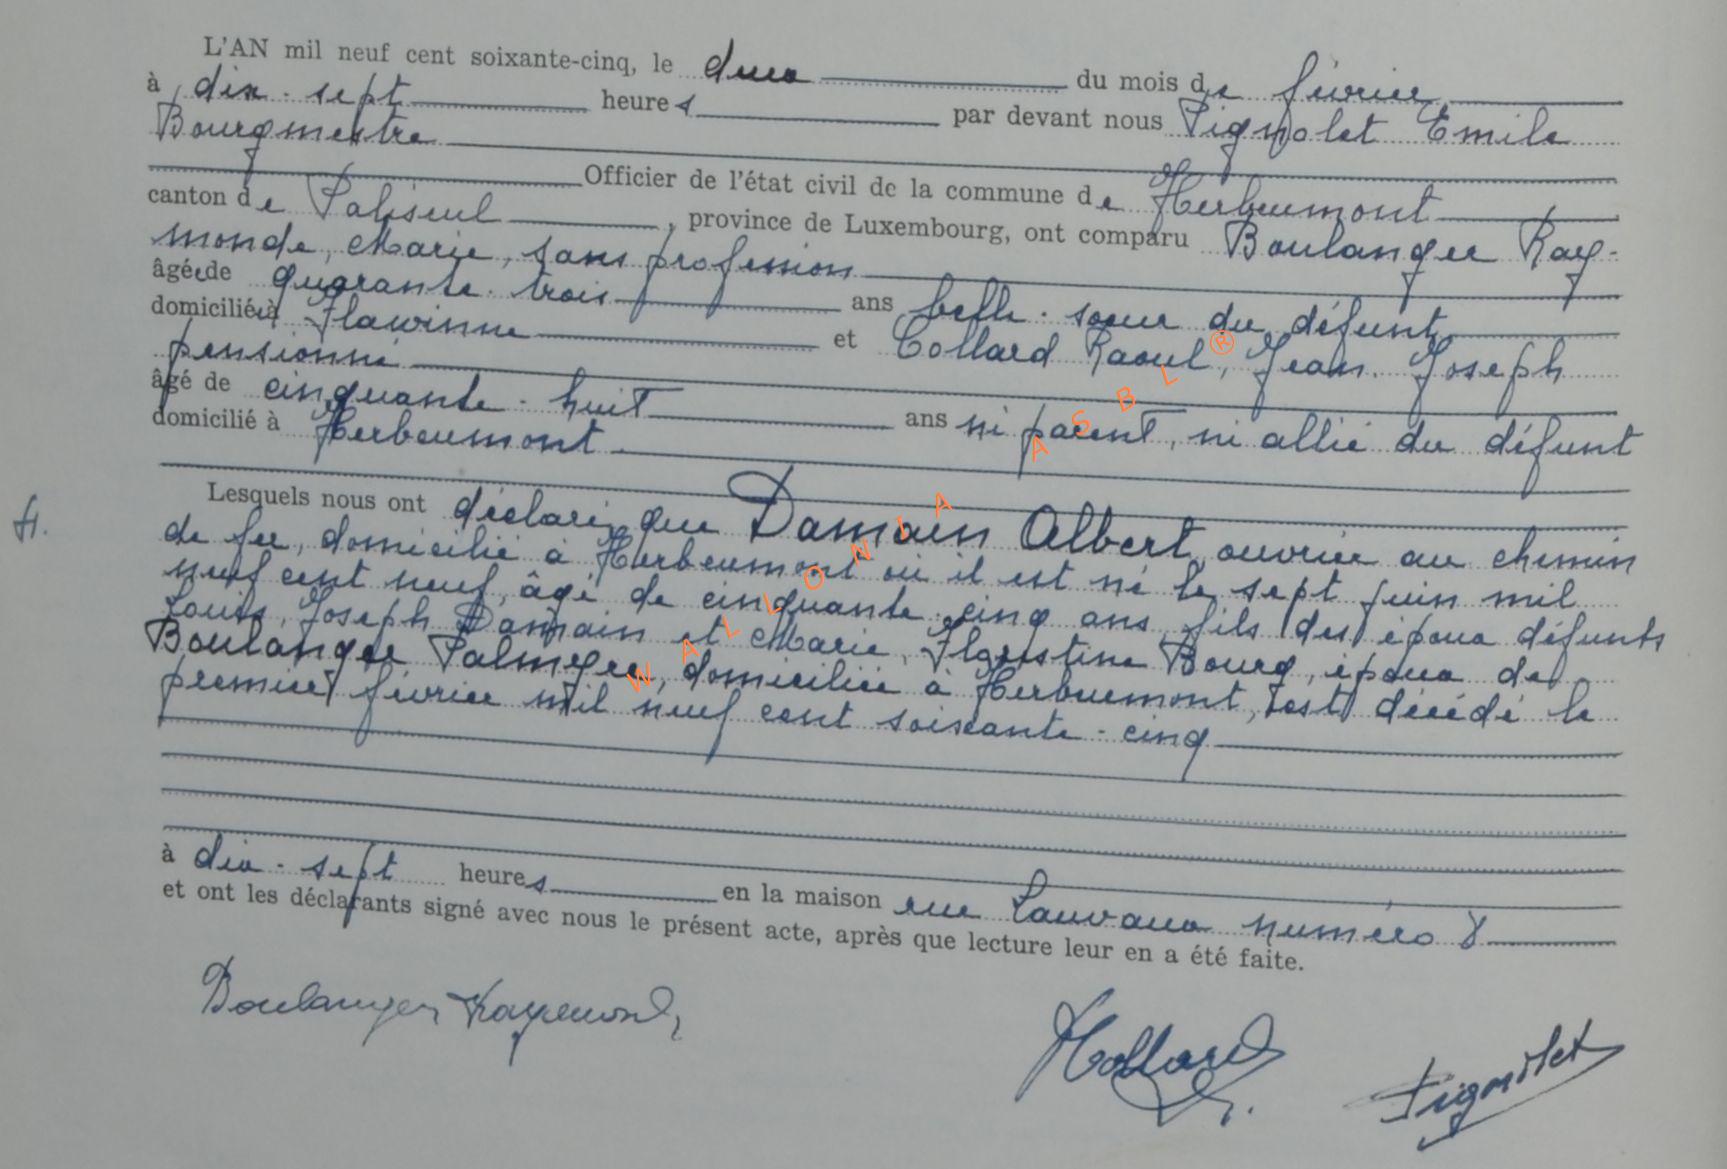 L'AN mil neuf cent soixante-cinq, le deux du mois de février
à dix-sept heures par devant nous Pignolet Emile
Bourgmestre
Officier de l'état civil de la commune de Herbeumont
canton de Paliseul, province de Luxembourg, ont comparu Boulanger Ray-
monde, Marie, sans profession
âgée de quarante-trois ans belle-soeur du défunt
domiciliée à Flawinne et Collard Raoul, Jean-Joseph
pensionné
âgé de cinquante-huit ans ni parent, ni allié du défunt
domicilié à Herbeumont
Lesquels nous ont déclaré que Damain Albert, ouvrier au chemin
de fer, domicilié à Herbeumont où il est né le sept juin mil
neuf cent neuf, âgé de cinquante-cinq ans, fils des époux défunts
Louis, Joseph Damain et Marie, Florestine Bourg, époux de
Boulanger Palmyre, domiciliée à Herbeumont, est décédé le
premier février mil neuf cent soixante-cinq
à dix-sept heures en la maison rue Lauvaux numéro 8
et ont les déclarants signé avec nous le présent acte, après que lecture leur en a été faite.
Boulanger Raymonde
Collard
Pignolet
WALLONIA ASBL ®